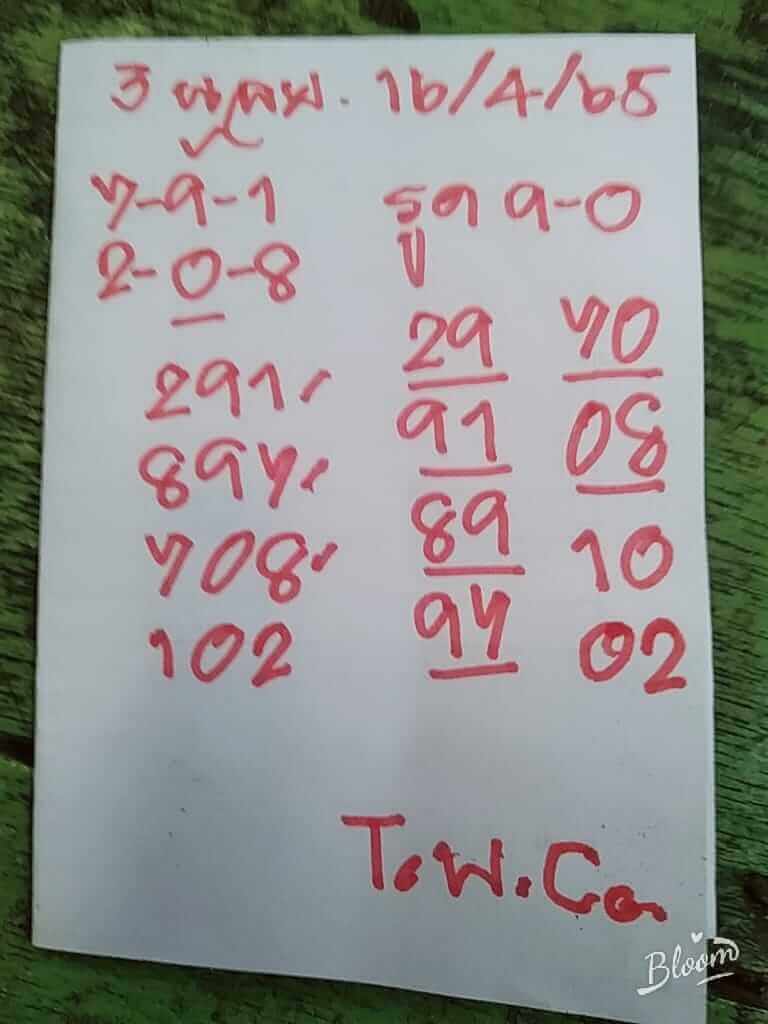 3 . 16/4/65
7-9-1
2-0-8
รูด 9-0
291
897
708
102
29 70
91 08
89 10
97 02
T.W.Co.
Bloom